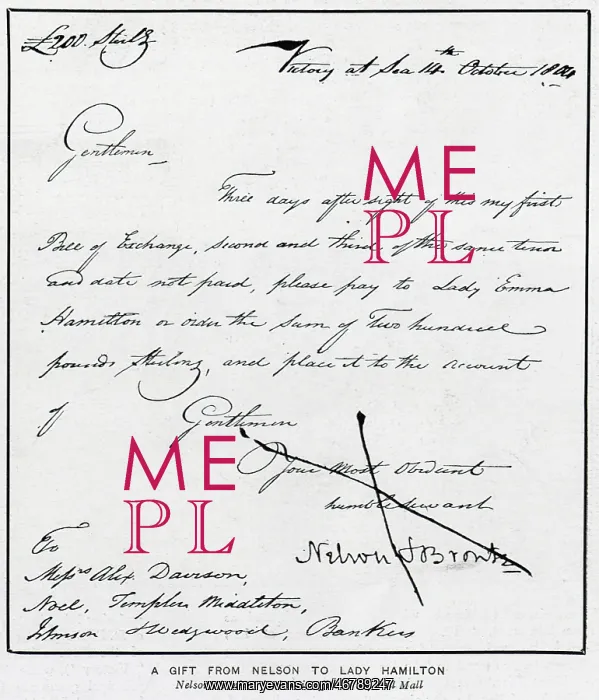 £200 Sterlg
Victory at Sea 14th October 1804
Gentlemen
Three days after sight of this my first
Bill of Exchange, second and third of the same tenor
and date not paid, please pay to Lady Emma
Hamilton or order the sum of Two hundred
pounds Sterling, and place it to the account
of Gentlemen
Your Most Obedient
humble servant
Nelson & Bronte
To
Messrs Alexr Davison,
Noel, Templer Middleton,
Johnson Wedgwood, Bankers
ME
PL
ME
PL
A GIFT FROM NELSON TO LADY HAMILTON
Nelson Mall
www.maryevans.com/46789247